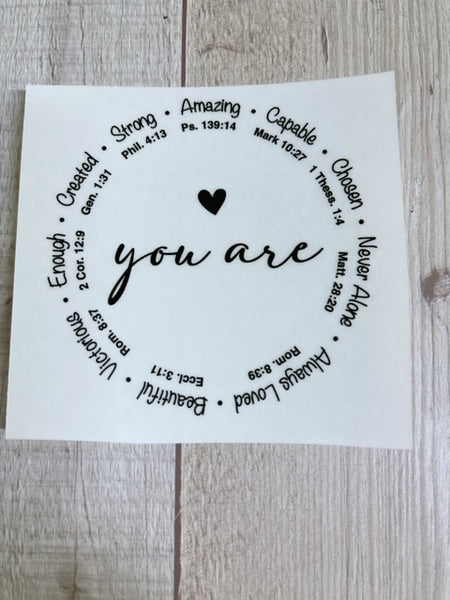 Amazing • Capable • Chosen • Never Alone • Always Loved • Beautiful • Victorious • Enough • Created • Strong •
Ps. 139:14 Mark 10:27 1 Thess. 1:4 Matt. 28:20 Rom. 8:39 Eccl. 3:11 Rom. 8:37 2 Cor. 12:9 Gen. 1:31 Phil. 4:13
you are